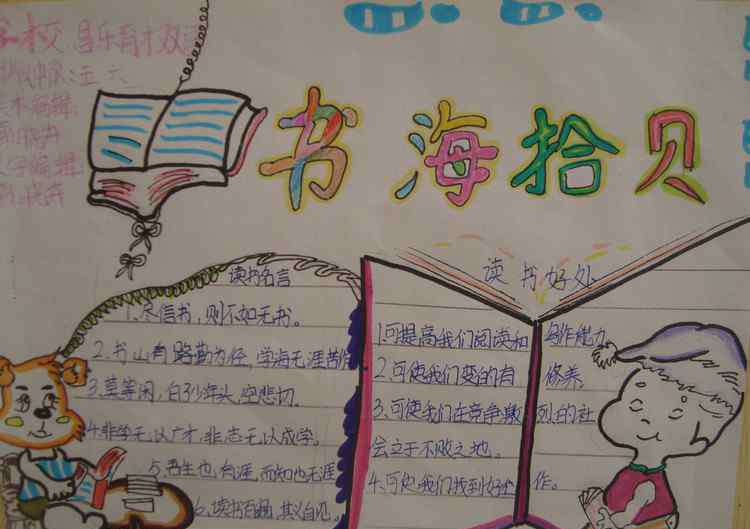 学校 昌乐育才双语
书海拾贝
读书名言
1.尽信书,则不如无书。
2.书山有路勤为径,学海无涯苦作
3.莫等闲,白了少年头,空悲切。
4.非学无以广才,非志无以成学。
5.吾生也有涯,而知也无涯
6.读书百遍,其义自见。
读书好处
1.可提高我们阅读和写作能力
2.可使我们变的有修养
3.可使我们在竞争激烈的社
会立于不败之地。
4.可使我们找到好工作。